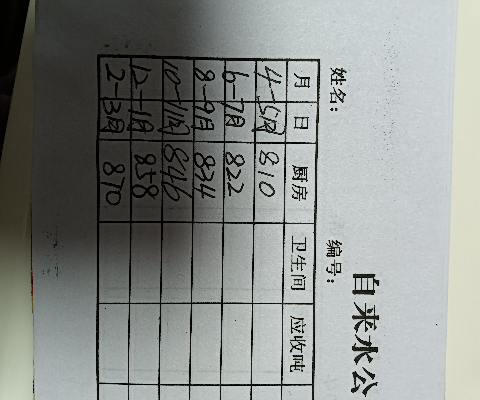 自来水公
姓名： 编号：
月 日 厨房 卫生间 应收吨
4-5月 810
6-7月 822
8-9月 834
10-11月 846
12-1月 858
2-3月 870